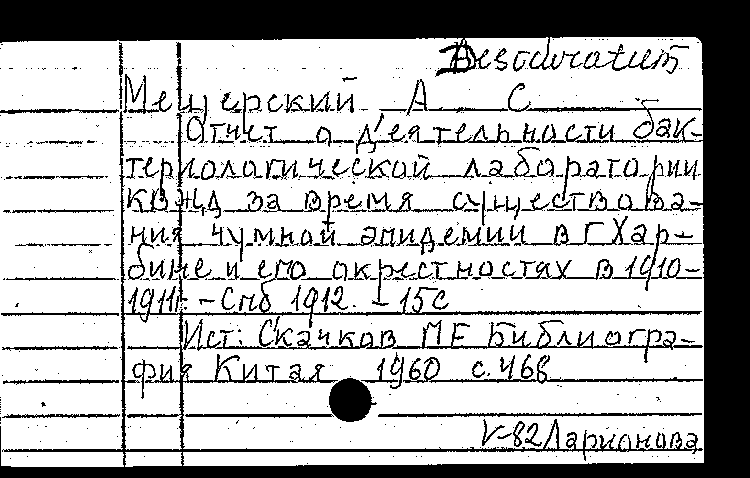 Desideratum
Мещерский А С
Отчет о деятельности бак-
териологической лаборатории
КВЖД за время существова-
ния чумной эпидемии в г Хар-
бине и его окрестностях в 1910-
1911г. - Спб 1912. - 15с
Ист: Скачков ПЕ Библиогра-
фия Китая 1960 с.468
V-82 Ларионова